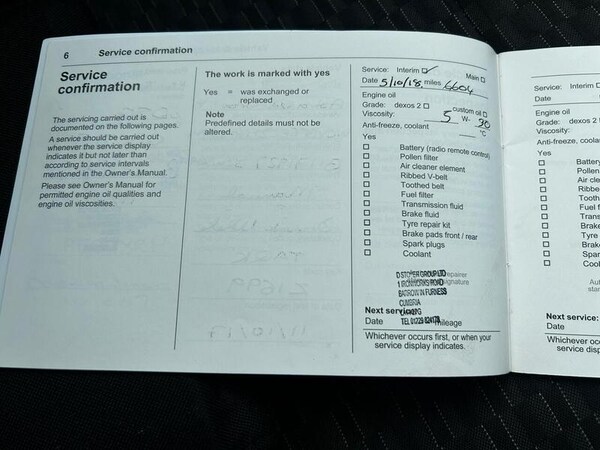 6 Service confirmation
Service
confirmation
The servicing carried out is
documented on the following pages.
A service should be carried out
whenever the service display
indicates it but not later than
according to service intervals
mentioned in the Owner's Manual.
Please see Owner's Manual for
permitted engine oil qualities and
engine oil viscosities.
The work is marked with yes
Yes = was exchanged or
replaced
Note
Predefined details must not be
altered.
Service: Interim Main
Date 5/10/18 miles 6604
Engine oil
Grade: dexos 2 custom oil
Viscosity: 5 W- 30
Anti-freeze, coolant °C
Yes
Battery (radio remote control)
Pollen filter
Air cleaner element
Ribbed V-belt
Toothed belt
Fuel filter
Transmission fluid
Brake fluid
Tyre repair kit
Brake pads front / rear
Spark plugs
Coolant
D STOKER GROUP LTD repairer
1 IRONWORKS ROAD signature
BARROW IN FURNESS
CUMBRIA
Next service:
Date mileage
TEL 01229
Whichever occurs first, or when your
service display indicates.
Service: Interim
Date
Engine oil
Grade: dexos 2
Viscosity:
Anti-freeze, coolan
Yes
Battery
Pollen
Air cle
Ribbed
Tooth
Fuel f
Trans
Brake
Tyre
Brak
Spar
Coo
Aut
Next service:
Date
Whichever oc
service disp